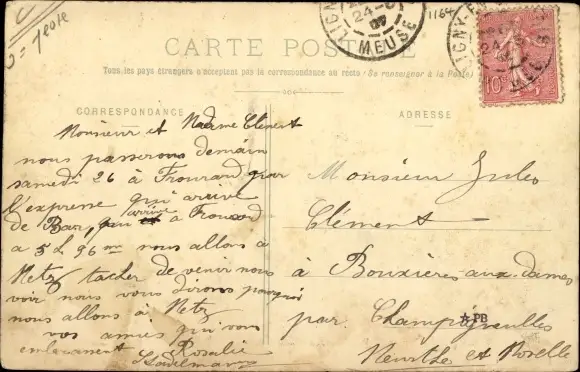 1164
LIGNY-EN
24 -
07
MEUSE
CARTE POSTALE
Tous les pays étrangers n'acceptent pas la correspondance au recto (Se renseigner à la Poste)
CORRESPONDANCE
Monsieur et Madame Clément
nous passerons demain
samedi 26 à Frouard par
l'expresse qui arrive
de Bar, qui arrive à Frouard
a 5 h 96 m nous allons a
Metz tacher de venir nous
voir nous vous dirons pourquoi
nous allons à Metz
vos amies qui vous
embrassent Rosalie
ADRESSE
Monsieur Jules
Clément
à Bouxières-aux-dames
par Champigneulles
Meurthe et Moselle
PB